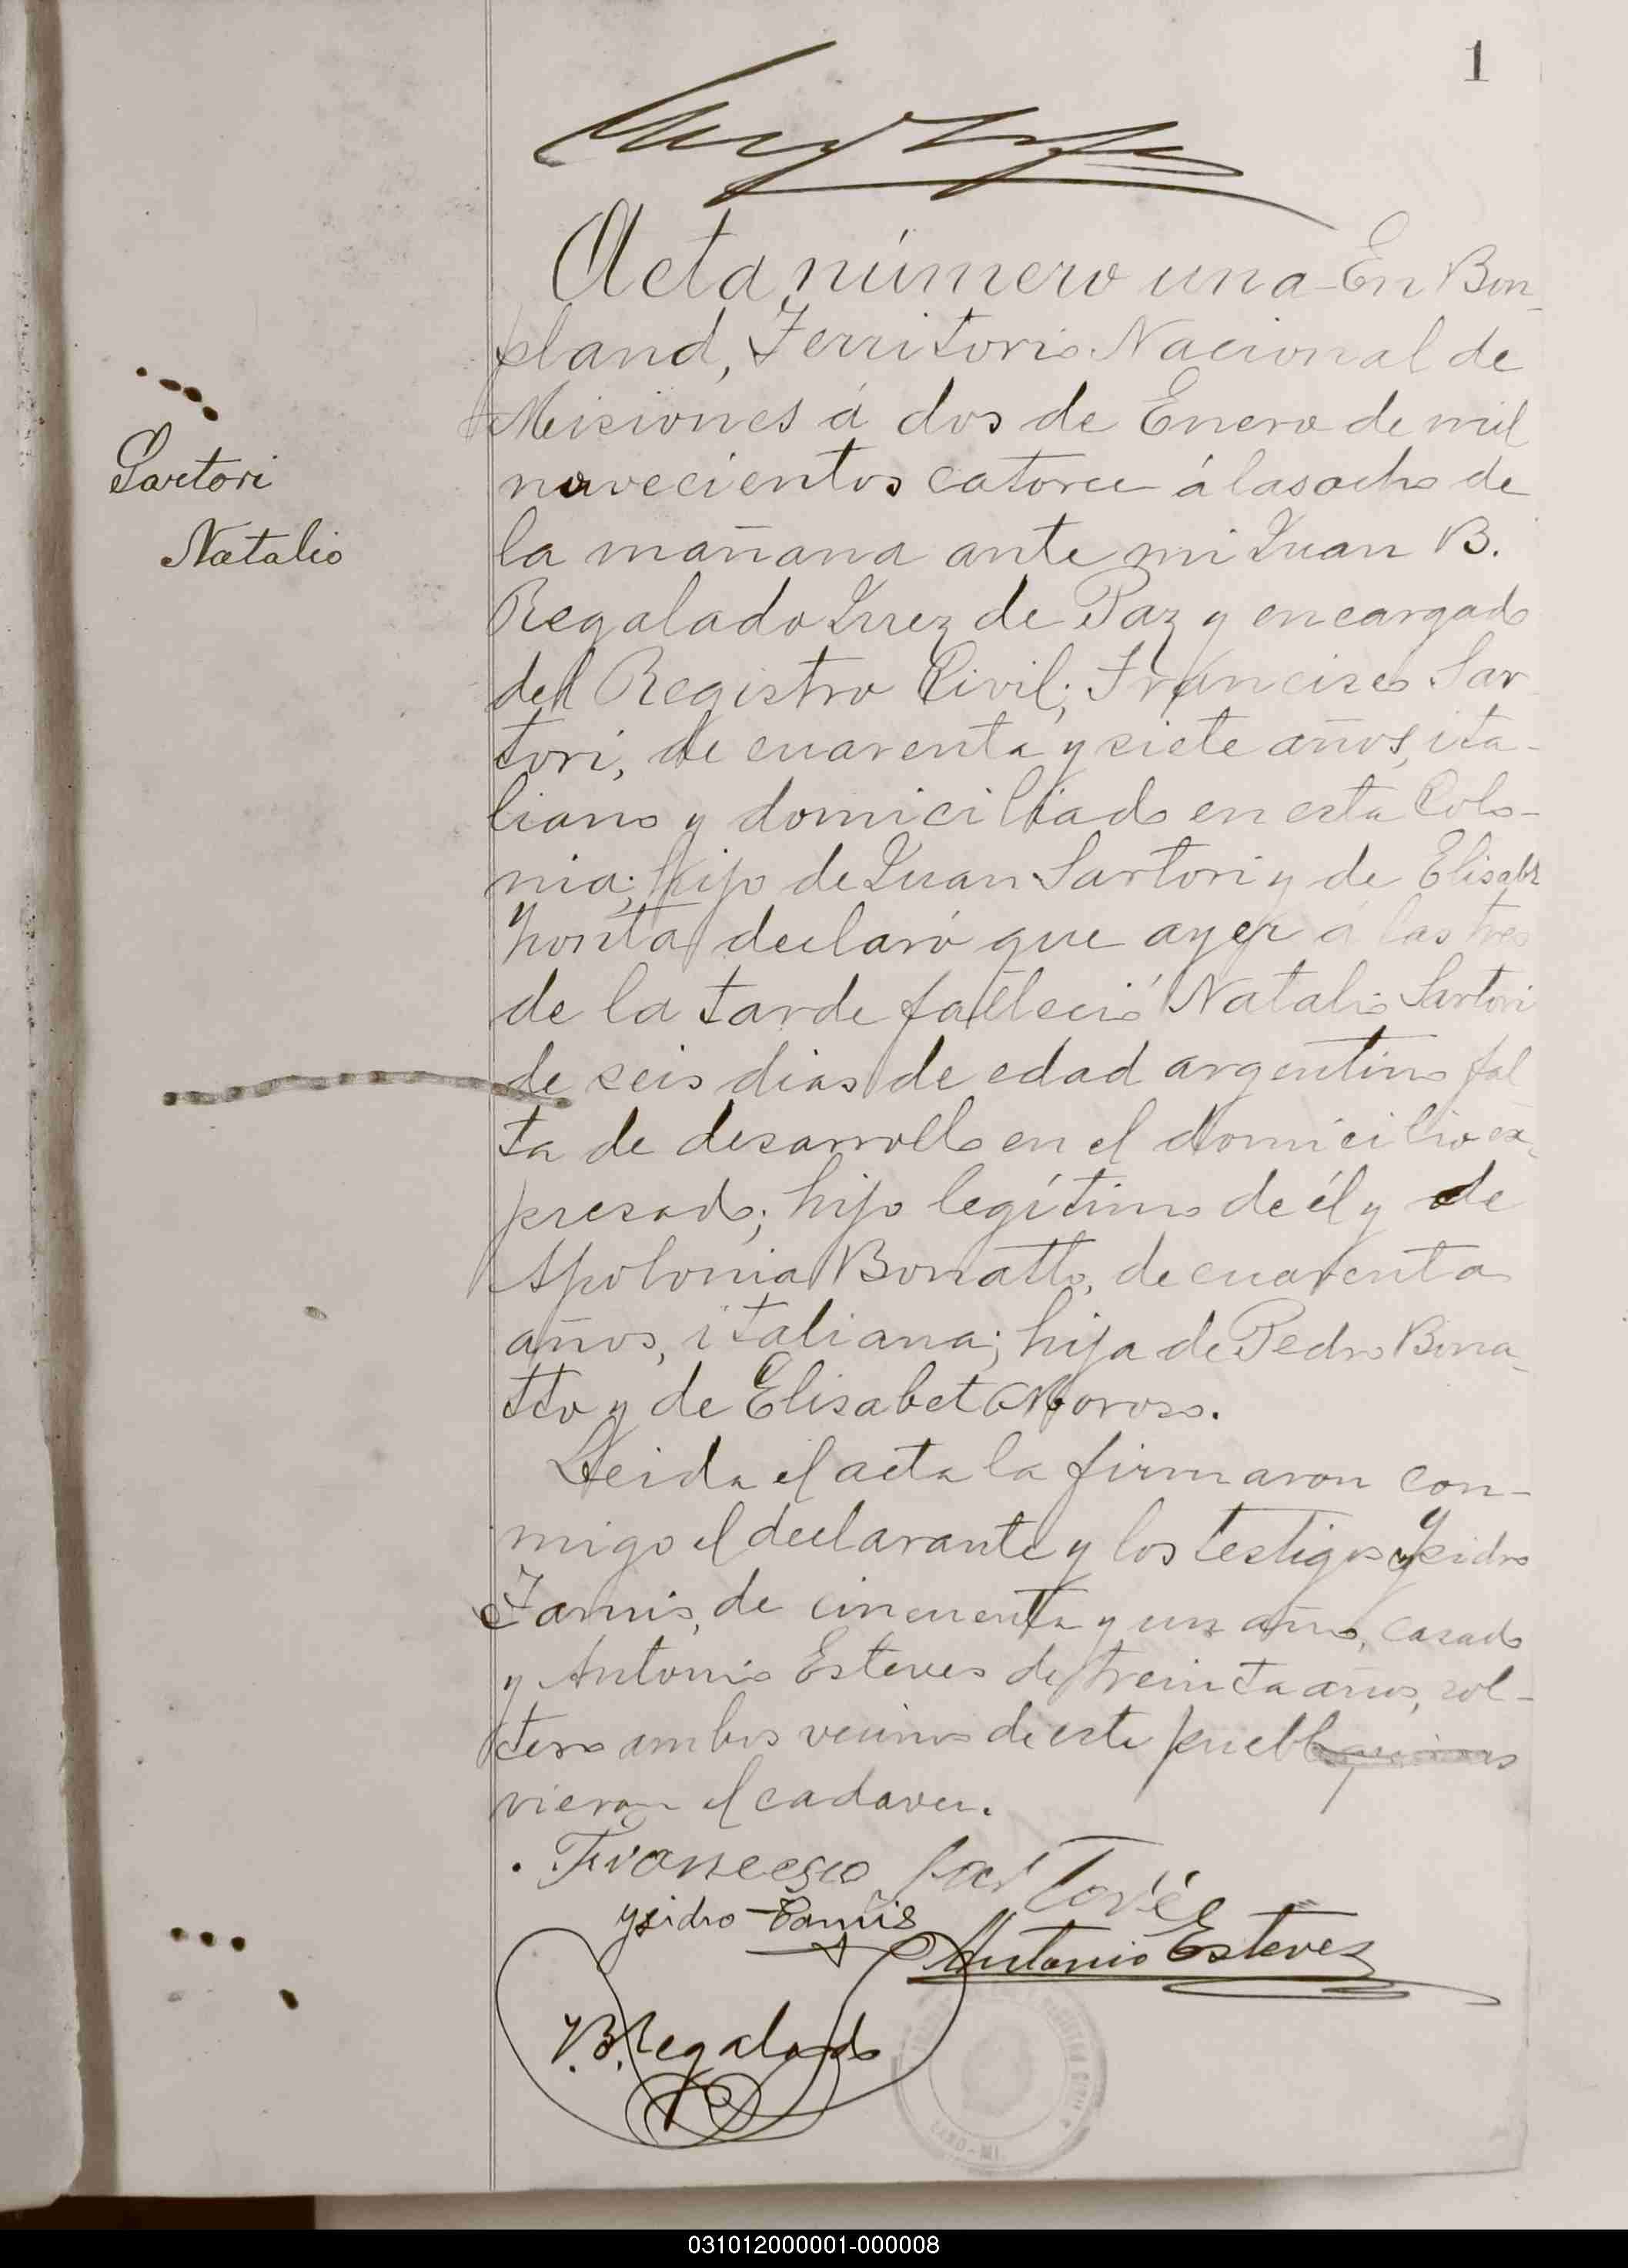 1
Acta número una En Bon-
pland, Territorio Nacional de
Misiones á dos de Enero de mil
novecientos catorce á las ocho de
la mañana ante mi Juan B.
Regalado Juez de Paz y encargado
del Registro Civil; Francisco Sar
tori, de cuarenta y siete años, ita-
liano y domiciliado en esta Colo-
nia; hijo de Juan Sartori y de Elisabet
declaró que ayer á las tres
de la tarde falleció Natalio Sartori
de seis dias de edad argentino fal
ta de desarrollo en el domicilio ex-
presado; hijo legítimo de él y de
Apolonia Bonatto, de cuarenta
años, italiana; hija de Pedro Bona-
tto y de Elisabet Moroso.
Leida el acta la firmaron con-
migo el declarante y los testigos Ysidro
de cincuenta y un años, casado
y Antonio Esteves de treinta años, sol-
tero ambos vecinos de este pueblo quienes
vieron el cadaver.
Sartori
Natalio
Ysidro
Antonio Estevez
J.B. Regalado
031012000001-000008